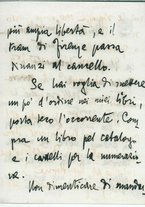 più ampia libertà, e il
tram di Firenze passa
dinanzi al cancello.
Se hai voglia di mettere
un po' d'ordine nei miei libri,
porta teco l'occorrente. Com
pra un libro pel catalogo
e i cartelli per la numerazio
ne.
Non dimenticare di mandar